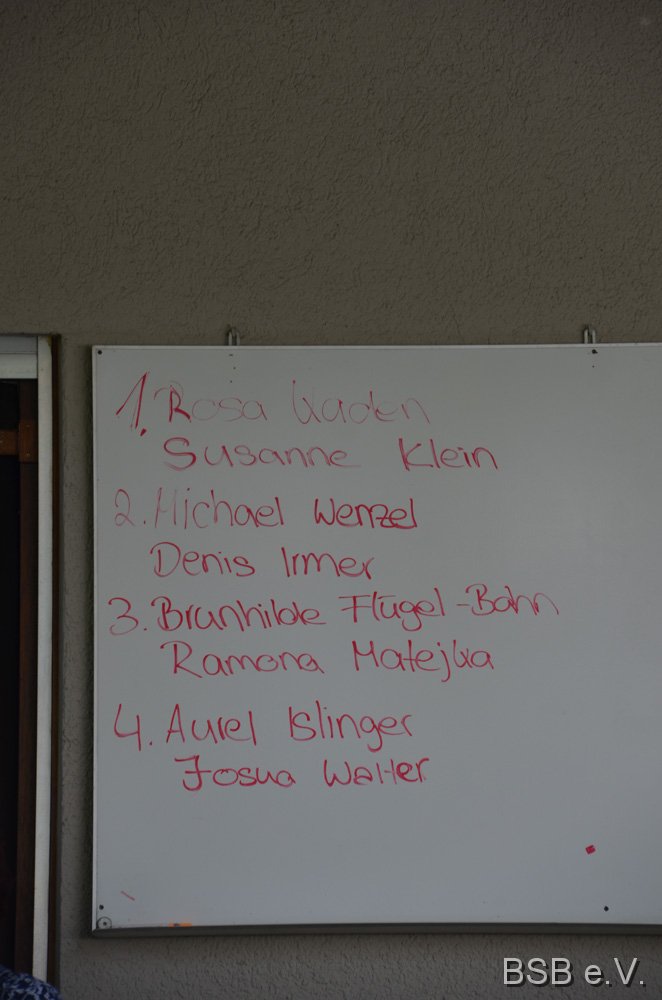 1. Rosa Kaden
Susanne Klein
2. Michael Wenzel
Denis Irmer
3. Brunhilde Flügel-Bahn
Ramona Matejka
4. Aurel Islinger
Josua Walter
BSB e.V.